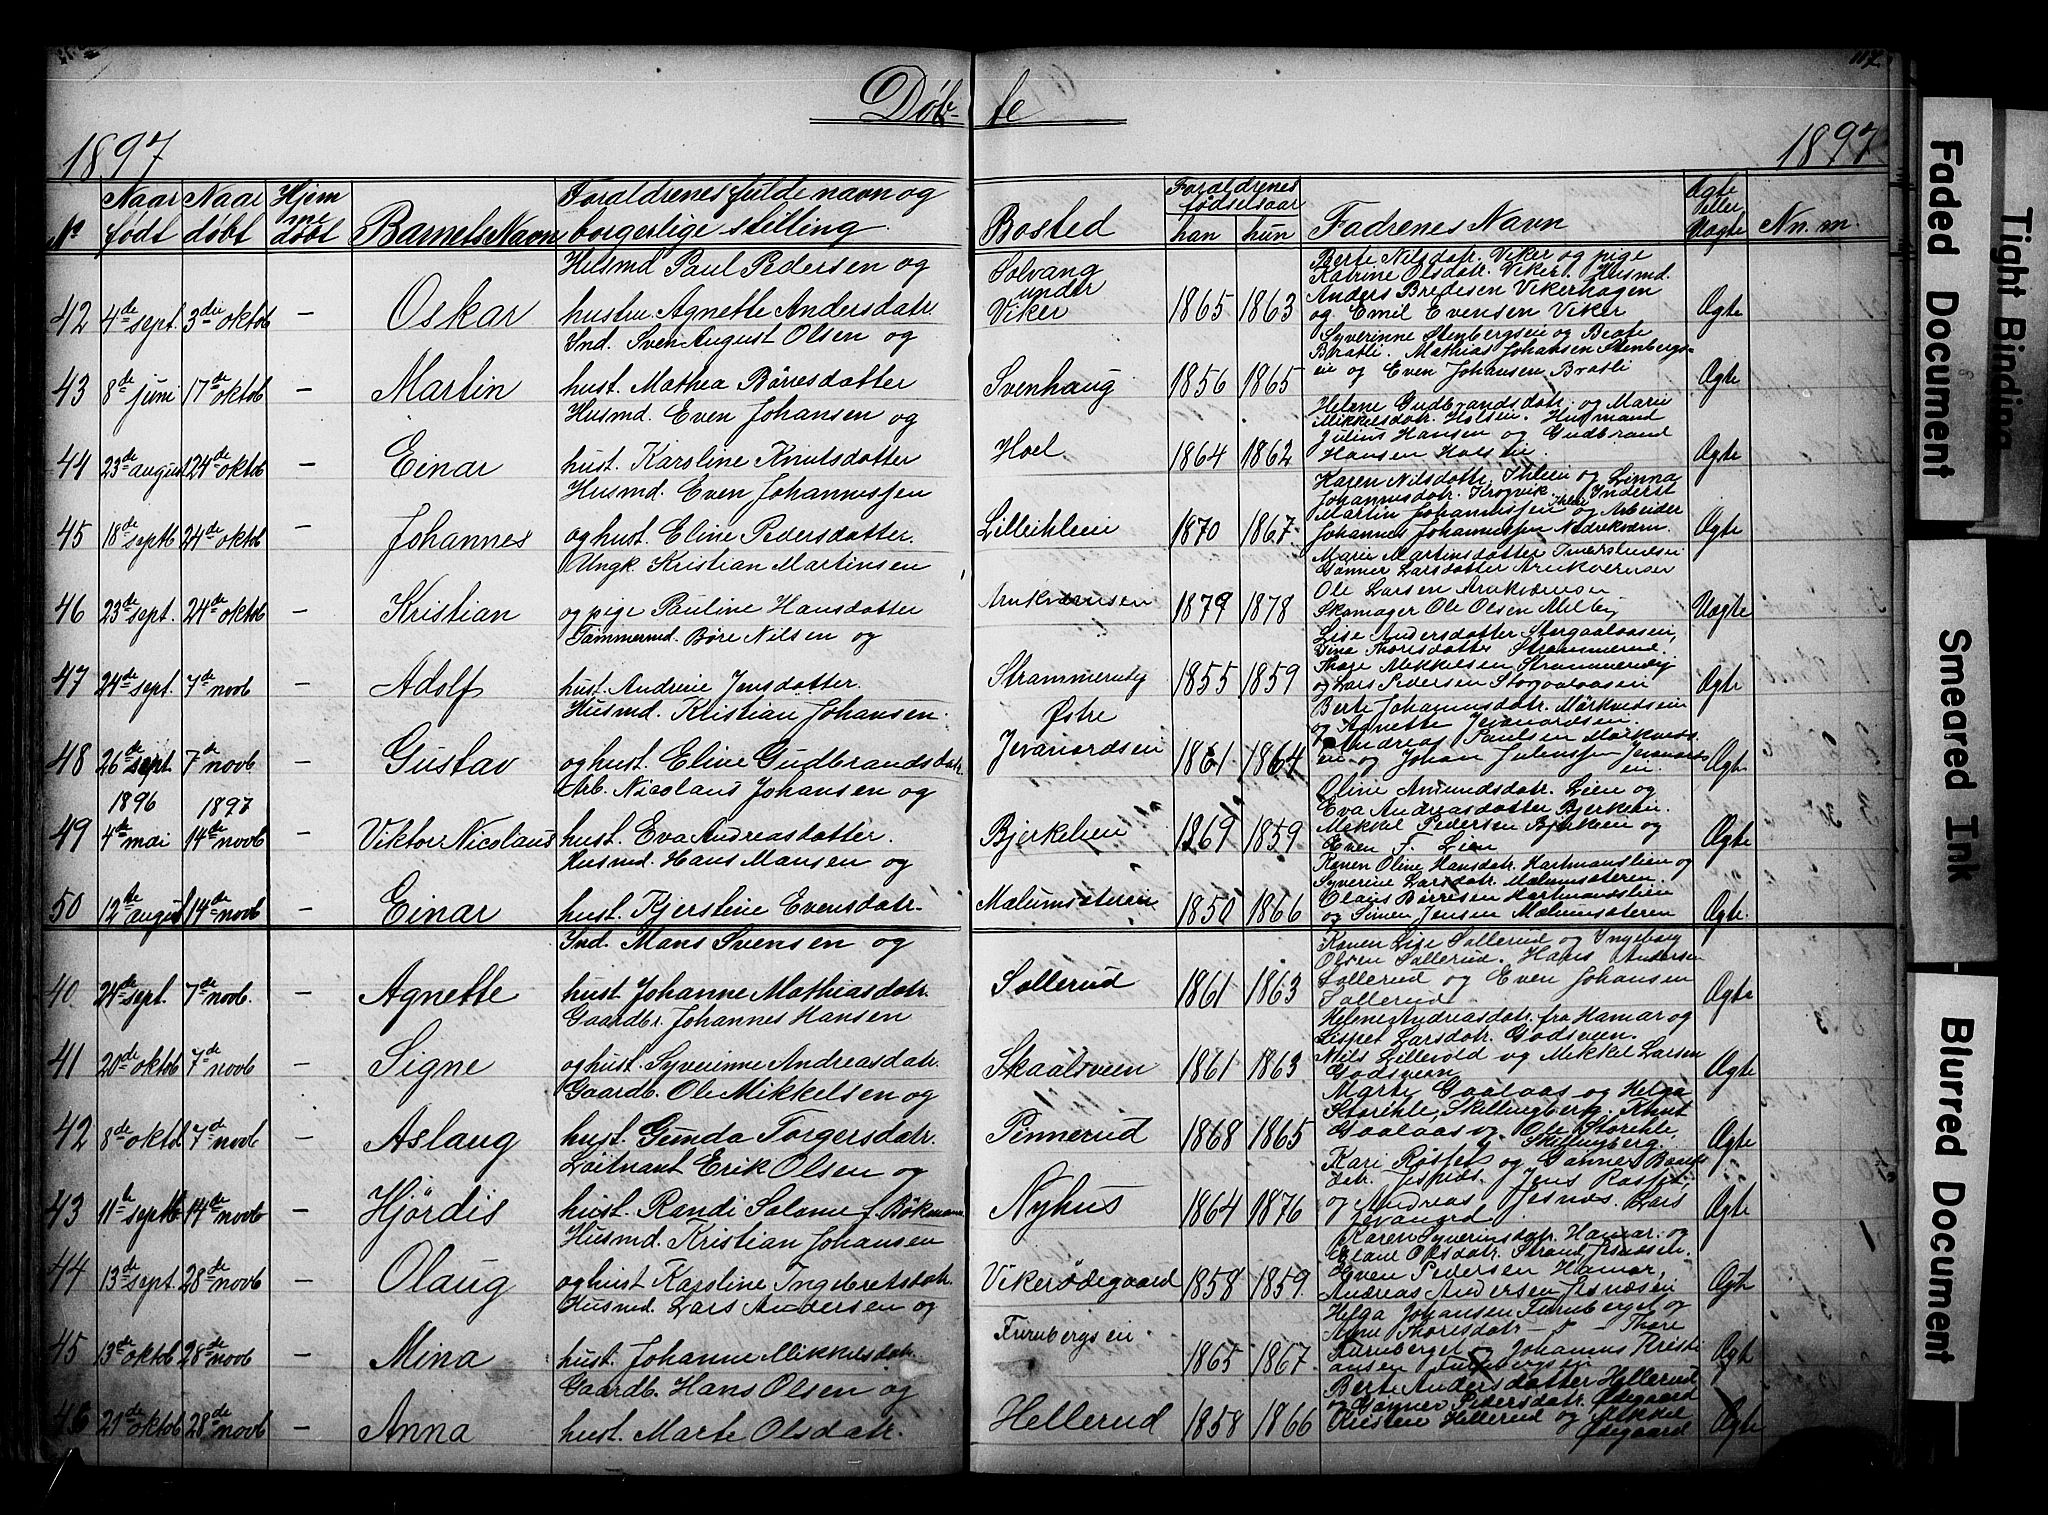 117.
Døb- te
1897 1897
No Naar født Naar døbt Hjemmedøbt Barnets Navn Forældrenes fulde navn og borgerlige stilling. Bosted Forældrenes fødselsaar han hun Fadrenes Navn Ægte eller Uægte An. m.
42 4de sept. 3die oktob — Oskar Husmd Paul Pedersen og hustru Agnette Andersdatr. Solvang under Viker 1865 1863 Berte Nilsdatr. Viker og pige Katrine Olsdatr. Viker. Husmd. Anders Bredesen Vikerhagen og Emil Evensen Viker Ægte
43 8de juni 17de oktob — Martin Ind. Sven August Olsen og hust. Mathea Börresdatter Svenhaug 1856 1865 Syverinne Stenbergseie og Beate Bratli. Mathias Johansen Stenbergseie og Even Johansen Bratli Ægte
44 23de august 24de oktob — Einar Husmd. Even Johansen og hust. Karoline Knutsdatter Hoel 1864 1862 Helene Gudbrandsdatr. og Marie Mikkelsdatr. Holsei. Husmand Julius Hansen og Gudbrand Hansen Holseie. Ægte
45 18de septb 24de oktob — Johannes Husmd. Even Johannissen og hust. Eline Pedersdatter. Lilleihleie 1870 1867 Karen Nilsdattr. Ihleie og Linna Johannisdatr. Krogvik. Inderst Martin Johannissen Ihleie og Arbeider Johannes Johannessen Nedrekværn. Ægte
46 23de sept. 24de oktob — Kristian Ungk. Kristian Martinsen og pige Pauline Hansdatter Arnkværnseie 1879 1878 Marie Martinsdatter Gonner Larsdatter Ole Larsen Skomager Ole Olsen Milbey Uægte
47 24de sept. 7de novb — Adolf Tømmermd. Børe Nilsen og hust. Andreie Jensdatter. Strammerudej 1855 1859 Lise Andersdatter Storgaalaaseie, Dina Thoresdatter Strammerud. Thore Mikkelsen Strammerudej og Lars Pedersen Ægte
48 26de sept 7de novb — Gustav Husmd. Kristian Johansen. og hust. Eline Gudbrandsdatr. Østre Jevanordseie 1861 1864 Berte Johannisdatr. Mörkvedseie og Agnette Jevanordseie. Andreas Paulsen Mörkvedseie og Johan Julenissen Jevanordseie. Ægte
49 1896 4de mai 1897 14de novb — Viktor Nicolaus Arb. Nicolaus Johansen og hust. Eva Andreasdatter. Bjerkelien 1869 1859 Oline Amundsdatr. Lien og Eva Andreasdatter Bjerkelien. Mikkel Pedersen Bjerkelien og Even F. Lien Ægte
50 12te august 14de novb — Einar Husmd. Hans Mansen og hust. Kjerstine Evensdatr. Mælumsæteren 1850 1866 Karen Oline Hansdatr. Hartmanslien og Syverine Larsdatr. Mælumsæteren. Olaus Börresen Hartmanslien og Simen Jensen Mælumsæteren Ægte.
40 24de sept. 7de novb. — Agnette Ind. Mans Svensen og hust. Johanne Mathiasdatr. Sollerud 1861 1863 Karen Lise Sollerud og Ingeborg Olsen Sollerud. Hans Andersen Sollerud og Even Johansen Sollerud Ægte
41 20de oktob 7de novb — Signe Gaardbr. Johannes Hansen og hust. Syverinne Andreasdatr. Skaalsveen 1861 1863 Helene Andreasdatr. fra Hamar og Lispet Larsdatr. Godsveen. Nils Lillevold og Mikkel Larsen Godsveen Ægte
42 8de oktb 7de novb — Aslaug Gaardb. Ole Mikkelsen og hust. Gunda Torgersdatr. Pinnerud 1868 1865 Marte Gaalaas og Helga Storihle, Skillingberg. Knut Gaalaas og Ole Storihle, Skillingberg. Ægte
43 11te septb 14de novb — Hjördis Löitnant Erik Olsen og hust. Randi Salome f. Bökman Nyhus 1864 1876 Kari Røsset og Gonner datr. Jespids. Jens Røsset, og Andreas Jesnes. Lars Jevanord Ægte
44 13de sept. 28de novb — Olaug Husmd. Kristian Johansen og hust Karoline Ingebretsdatr. Vikerødegaard 1858 1859. Karen Syverinsdatr. Hamar. og Eliane Olsdatr. Even Pedersen Hamar, Andreas Andersen Jesnæseie Ægte
45 13de oktob 28de novb — Mina Husmd. Lars Andersen og hust. Johanne Mikkelsdatr. Furubergseie 1865 1867. Helga Johansen Furuberget og Anne Thoresdatr — " — Thore Furuberget og Johannes Kristiansen Furubergseie Ægte
46 21de oktob 28de novb — Anna Gaardb. Hans Olsen og hust. Marte Olsdatr. Hellerud 1858 1866 Berte Andersdatter Hellerud og Gonner Pedersdatr. Ødegaard Kristen Hellerud og Mikkel Ødegaard Ægte
Faded Document
Tight Binding
Smeared Ink
Blurred Document